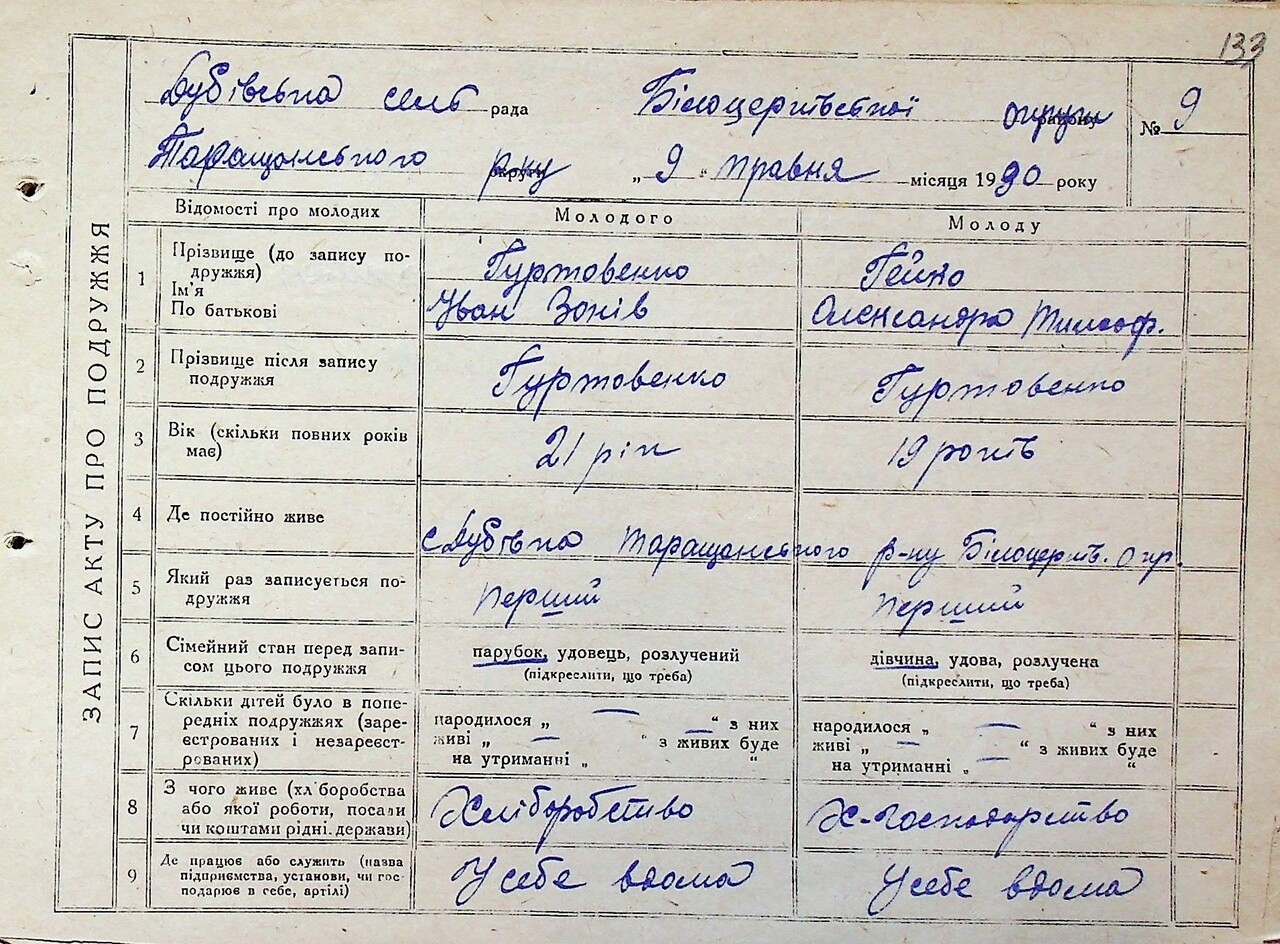 133
Дубівська сель рада Білоцерківської округи № 9
Таращанського р-ну „ 9 “ травня місяця 1930 року
ЗАПИС АКТУ ПРО ПОДРУЖЖЯ
Відомості про молодих Молодого Молоду
1 Прізвище (до запису по-
дружжя) Гуртовенко Гейко
Ім'я
По батькові Іван Зонів Олександра Тимоф.
2 Прізвище після запису
подружжя Гуртовенко Гуртовенко
3 Вік (скільки повних років
має) 21 рік 19 років
4 Де постійно живе
с Дубівка Таращанського р-ну Білоцерків. окр.
5 Який раз записується по-
дружжя перший перший
6 Сімейний стан перед запи-
сом цього подружжя парубок, удовець, розлучений дівчина, удова, розлучена
(підкреслити, що треба) (підкреслити, що треба)
7 Скільки дітей було в попе-
редніх подружжях (заре-
єстрованих і незареєст-
рованих) народилося „ — “ з них народилося „ — “ з них
живі „ — “ з живих буде живі „ — “ з живих буде
на утриманні „ “ на утриманні „ — “
8 З чого живе (хліборобства
або якої роботи, посади
чи коштами рідні, держави) Хліборобство Х-господарство
9 Де працює або служить (назва
підприємства, установи, чи гос-
подарює в себе, артілі) У себе вдома У себе вдома